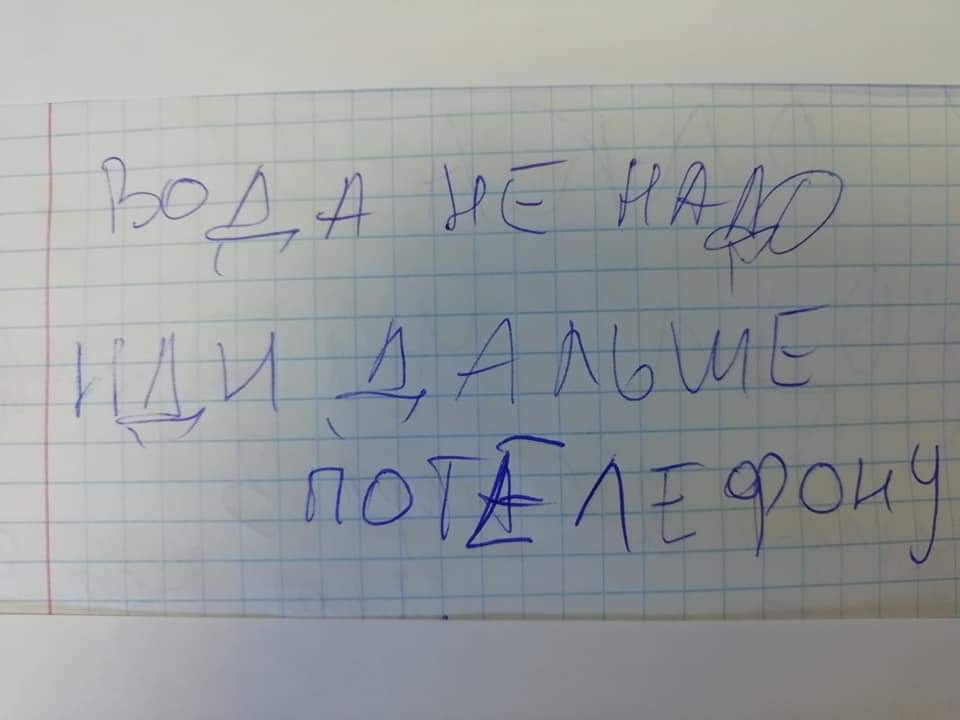 ВОДА НЕ НАДО
ИДИ ДАЛЬШЕ
ПОТЕЛЕФОНУ